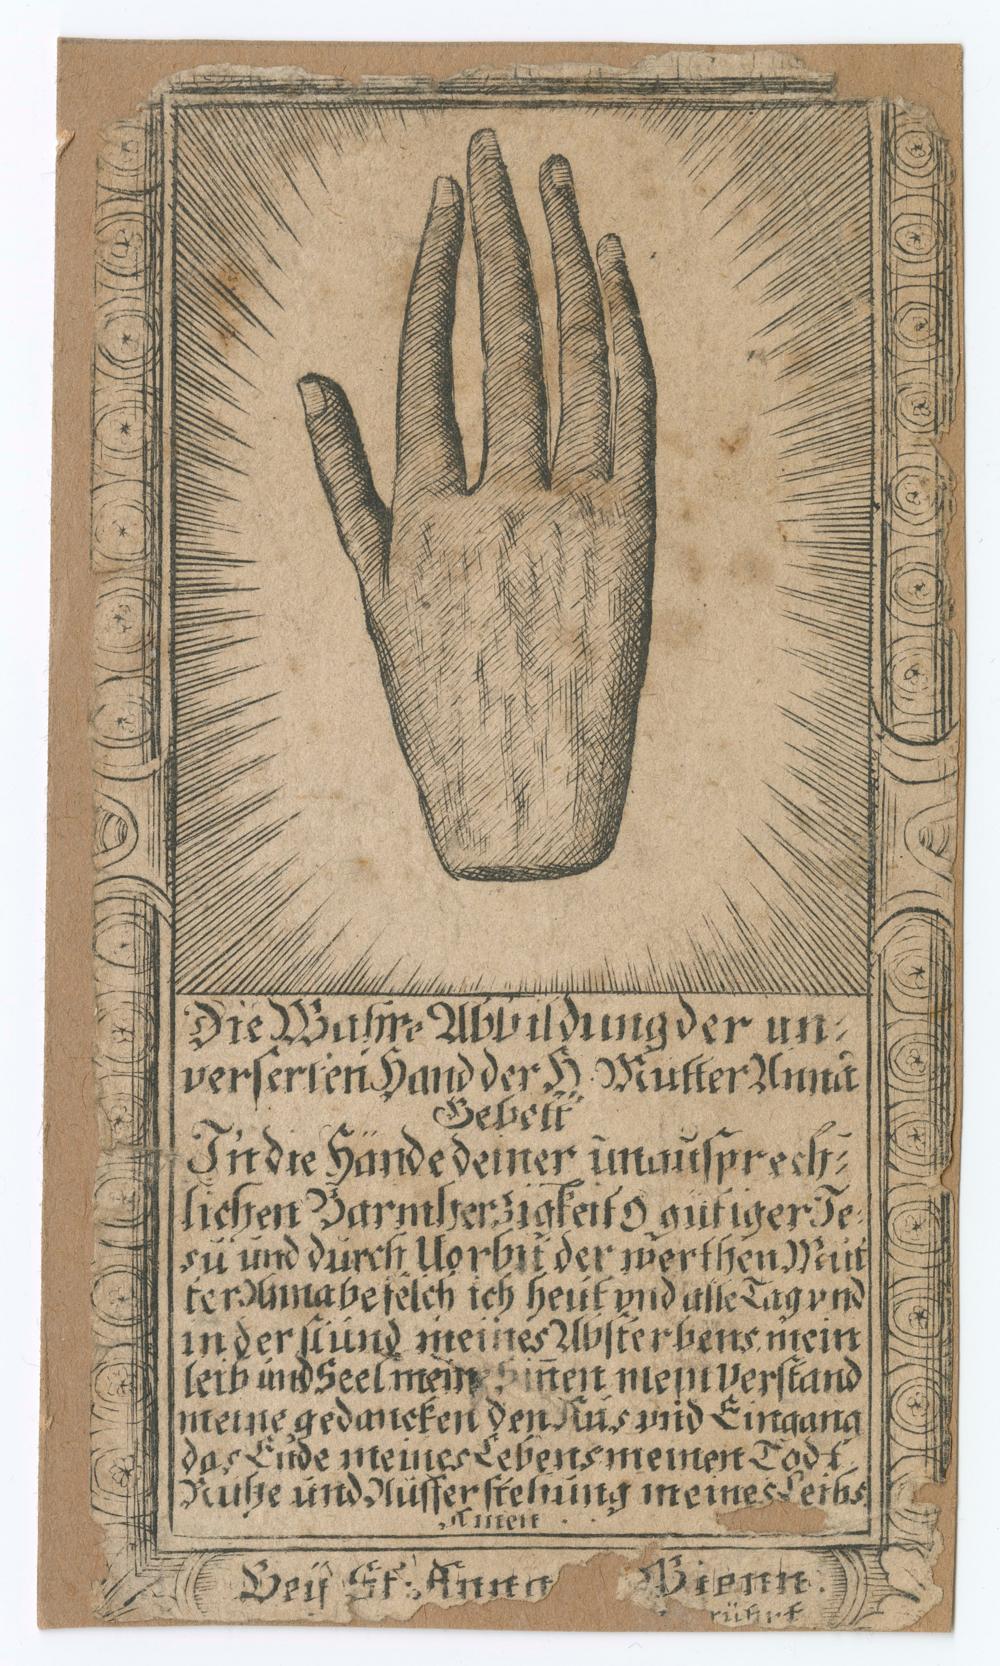 Die Wahre Abbildung der un=
versertën Hand der H. Mutter Anna
Gebett
In die Hände deiner unaussprech=
lichen Barmherzigkeit O gütiger Je=
su und durch Vorbitt der werthen Mut
ter Anna befelch ich heut vnd alle Tag vnd
in der stund meines Absterbens mein
leib und Seel mein Sinen mein Verstand
meine gedancken den Aus vnd Eingang
das Ende meines Lebens meinen Todt
Ruhe und Aufferstehung meines Leibs
Amen
Beÿ St: Anna Wienn.
rührt